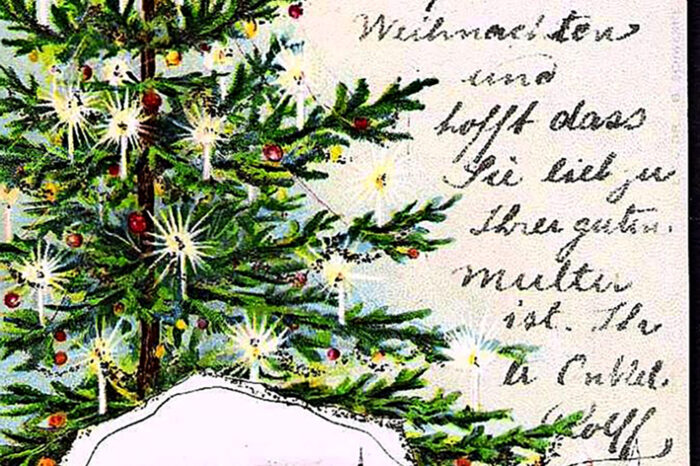 Weihnachten
und
hofft dass
Sie lieb zu
Ihrer guten
Mutter
ist. Ihr
Onkel